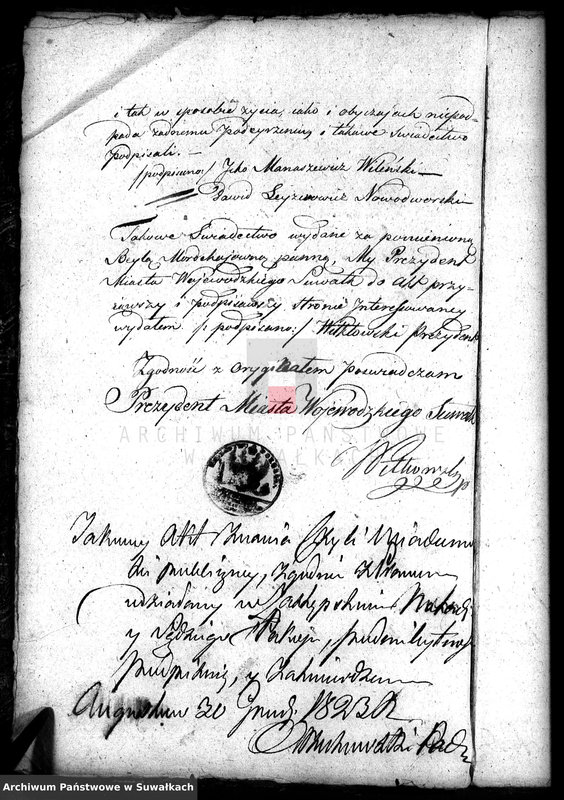 i tak w sposobie życia, iako i obyczaiach niepod-
pada żadnemu Podeyrzeniu i takowe Swiadectwo
podpisali. —
/podpisano:/ Jcko Manaszewicz Wiliński —
Dawid Leyzerowicz Nowodworski —
Takowe Swiadectwo wydane za pomienioną
Beylą Mordchajowną panną, My Prezydent
Miasta Wojewodzkiego Suwałk do Akt przy-
iąwszy i podpisawszy Stronie Interessowaney
wydałem. /: podpisano:/ Witkowski Prezydent
Zgodność z Oryginałem poswiadczam
Prezydent Miasta Wojewodzkiego Suwałk
Witkowski
ARCHIWUM PAŃSTWOWE
W SUWAŁKACH
Takowy Akt Znania Czyli Wiadomo-
ści publiczney, zgodnie z
udzielony w Zastępstwie
y Sędziego Pokoju,
podpisuię, y
Augustow 30 Grud. 1823 R.
Archiwum Państwowe w Suwałkach